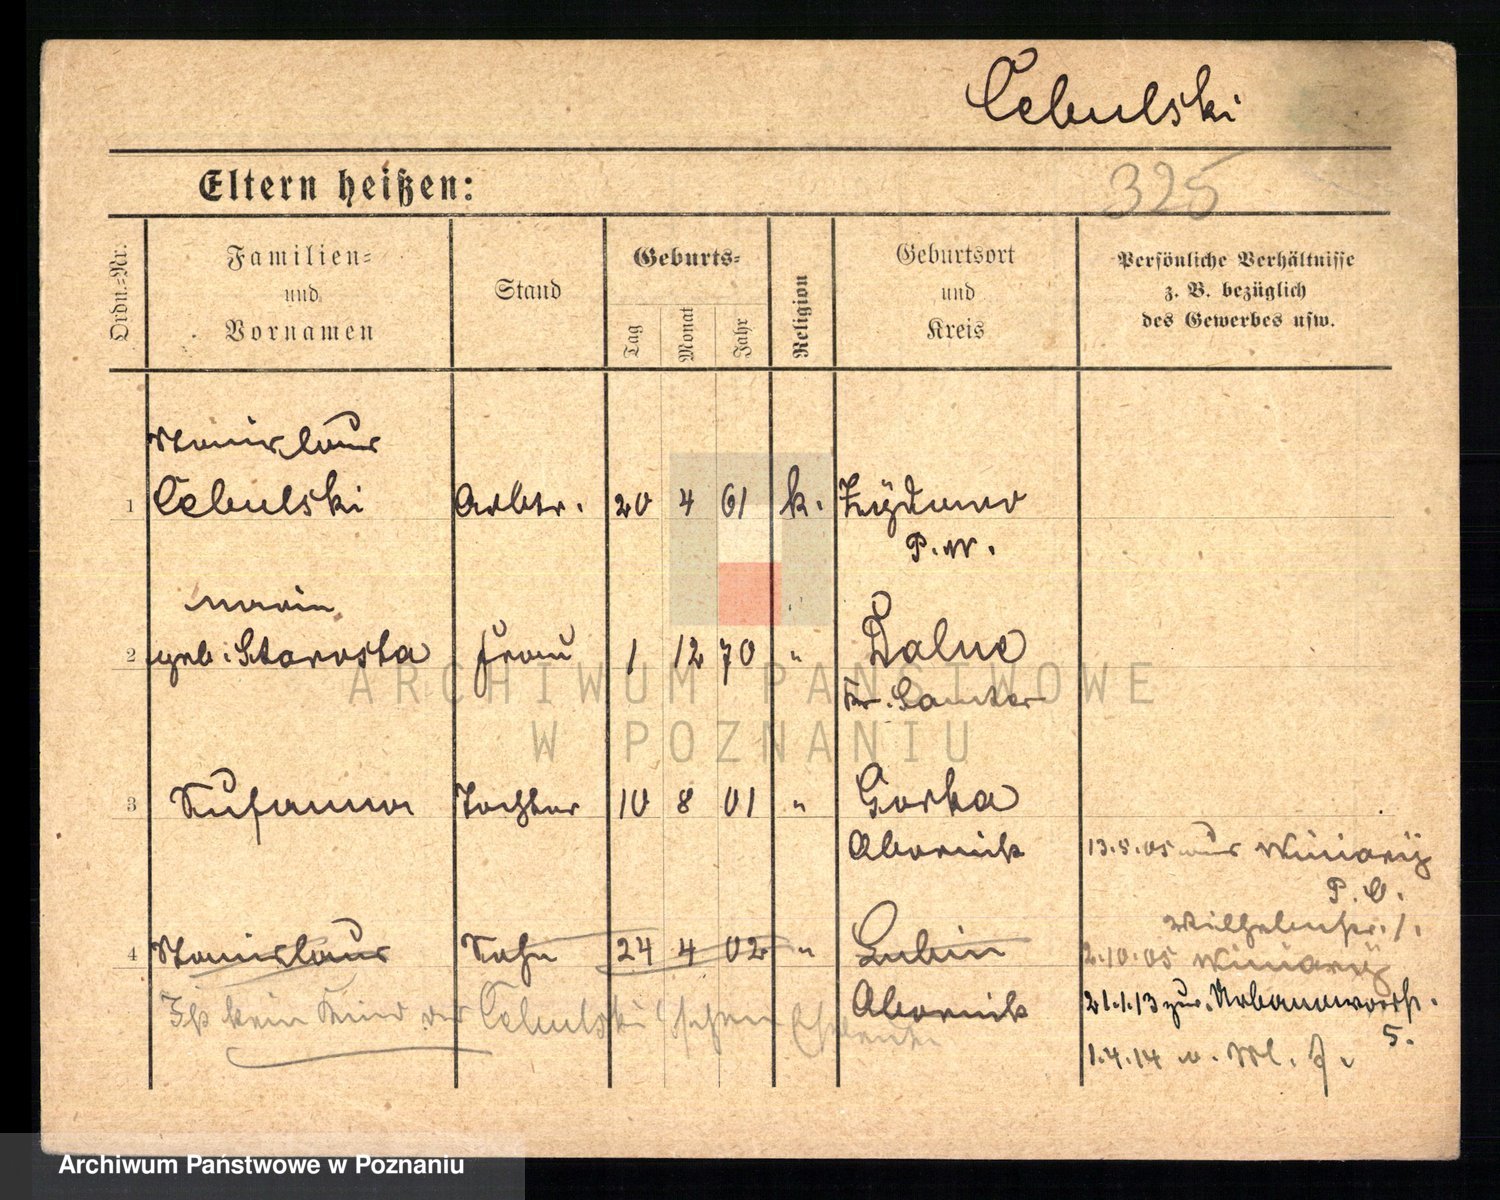 Cebulski
Eltern heißen:
325
Ordn.=Nr.
Familien=
und
Vornamen
Stand
Geburts=
Tag
Monat
Jahr
Religion
Geburtsort
und
Kreis
Persönliche Verhältnisse
z. B. bezüglich
des Gewerbes usw.
Stanislaus
1 Cebulski Arbtr. 20 4 61 k.
P. W.
Maria
2 geb. Starosta Frau 1 12 70 " Dalne
Kr. Samter
3 Susanna Tochter 10 8 01 " Gorka
Obornik 13.5.05 aus Winiary
P. O.
Wilhelmstr. 1.
4 Stanislaus Sohn 24 4 02 " Lubin 2.10.05 Winiary
Obornik 21.1.13 zur.
Ist kein Kind der Cebulski'schen Eheleute
5.
1.4.14 n.
ARCHIWUM PAŃSTWOWE
W POZNANIU
Archiwum Państwowe w Poznaniu